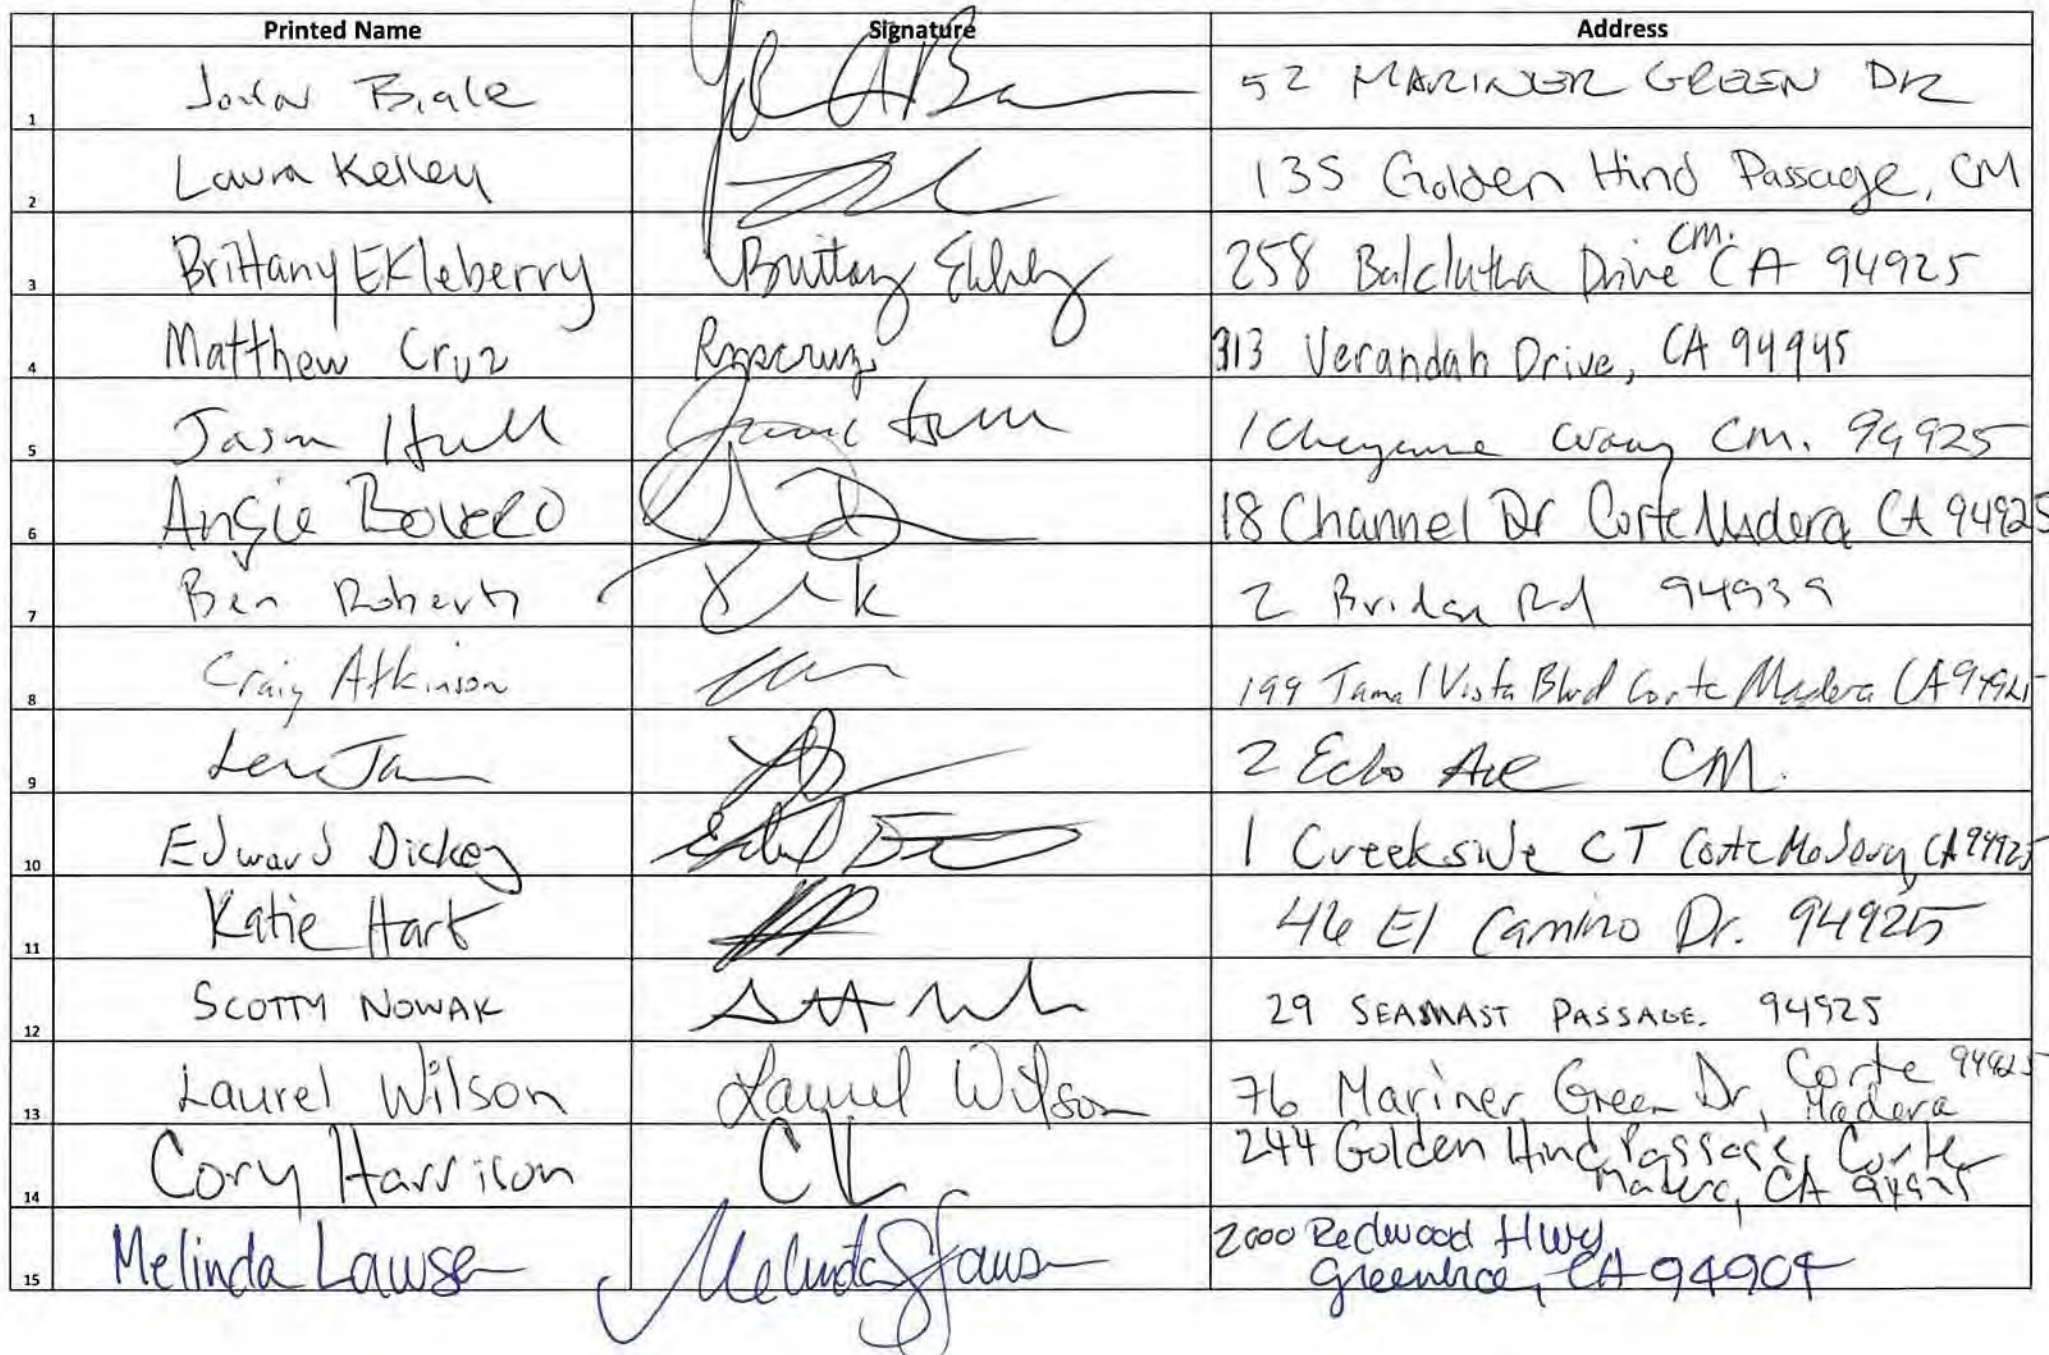 Printed Name Signature Address
1 52 MARINER GREEN DR
2 Laura Kelley 135 Golden Hind Passage, CM
3 Brittany Ekleberry Brittany 258 Balclutha Drive CM. CA 94925
4 Matthew Cruz 313 Verandah Drive, CA 94945
5 Jason Hull Hull 1 Cheyenne Way CM. 94925
6 Angie Bovero 18 Channel Dr Corte Madera CA 94925
7 Ben Roberts 2 Bridge Rd 94939
8 Craig Atkinson 199 Tamal Vista Blvd Corte Madera CA 94925
9 2 Echo Ave CM.
10 Edward Dickey 1 Creekside CT Corte Madera CA 94925
11 Katie Hart 46 El Camino Dr. 94925
12 SCOTTY NOWAK 29 SEAMAST PASSAGE. 94925
13 Laurel Wilson Laurel Wilson 76 Mariner Green Dr, Corte Madera 94925
14 Cory Harrison CH 244 Golden Hind Passage, Corte
Madera, CA 94925
15 Melinda Lawson Melinda S Lawson 2000 Redwood Hwy
Greenbrae, CA 94904